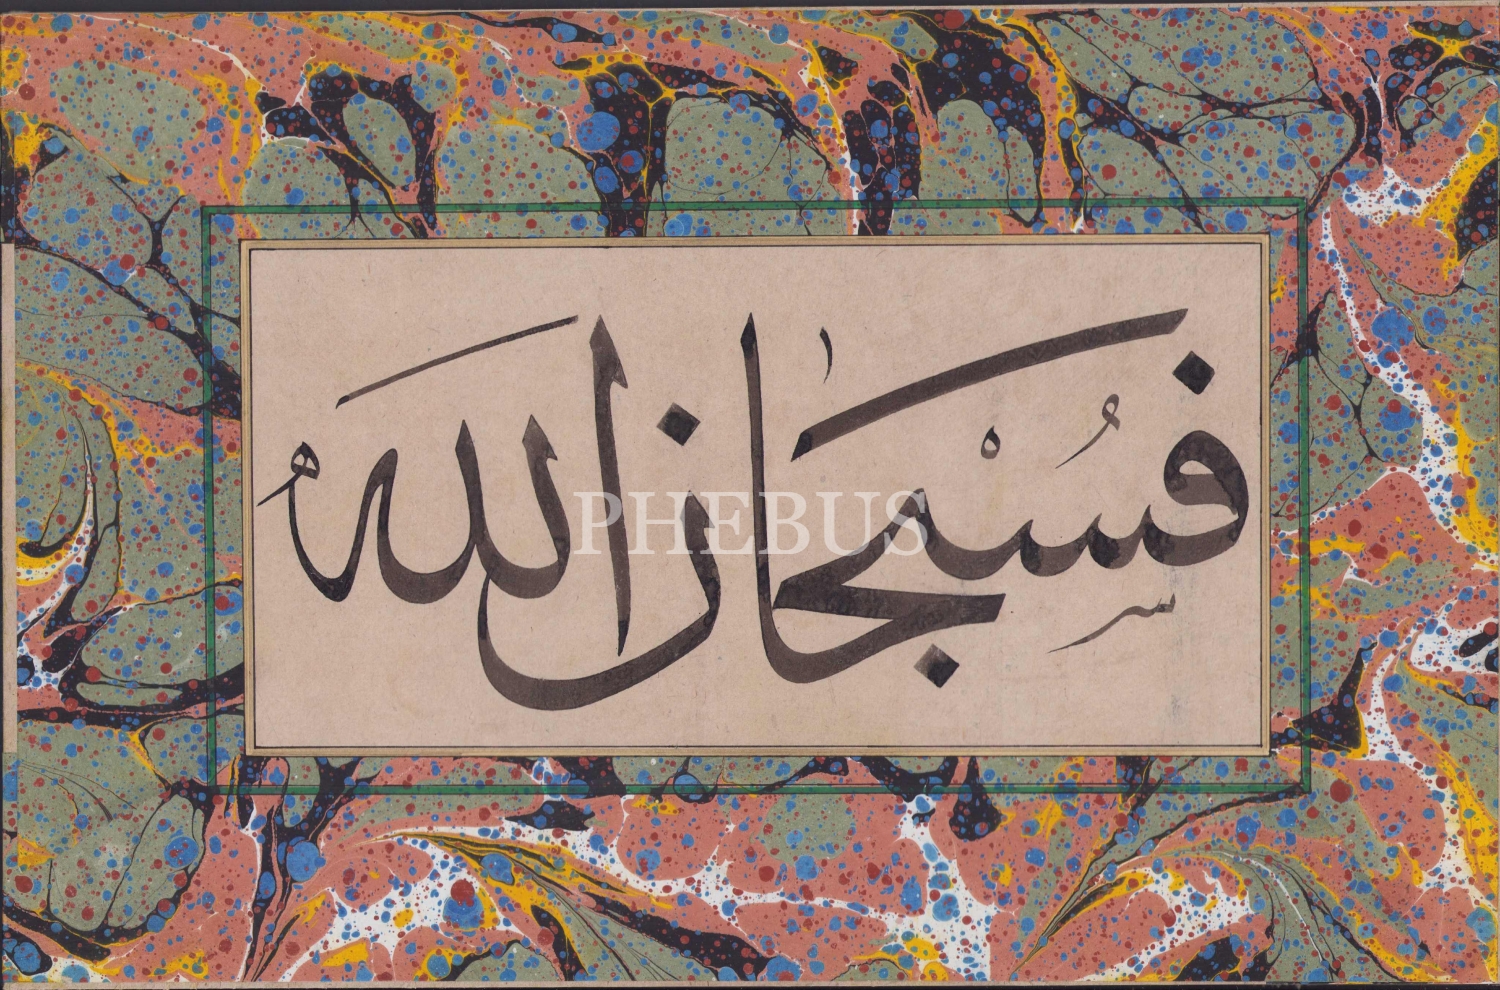 فسبحان الله
PHEBUS